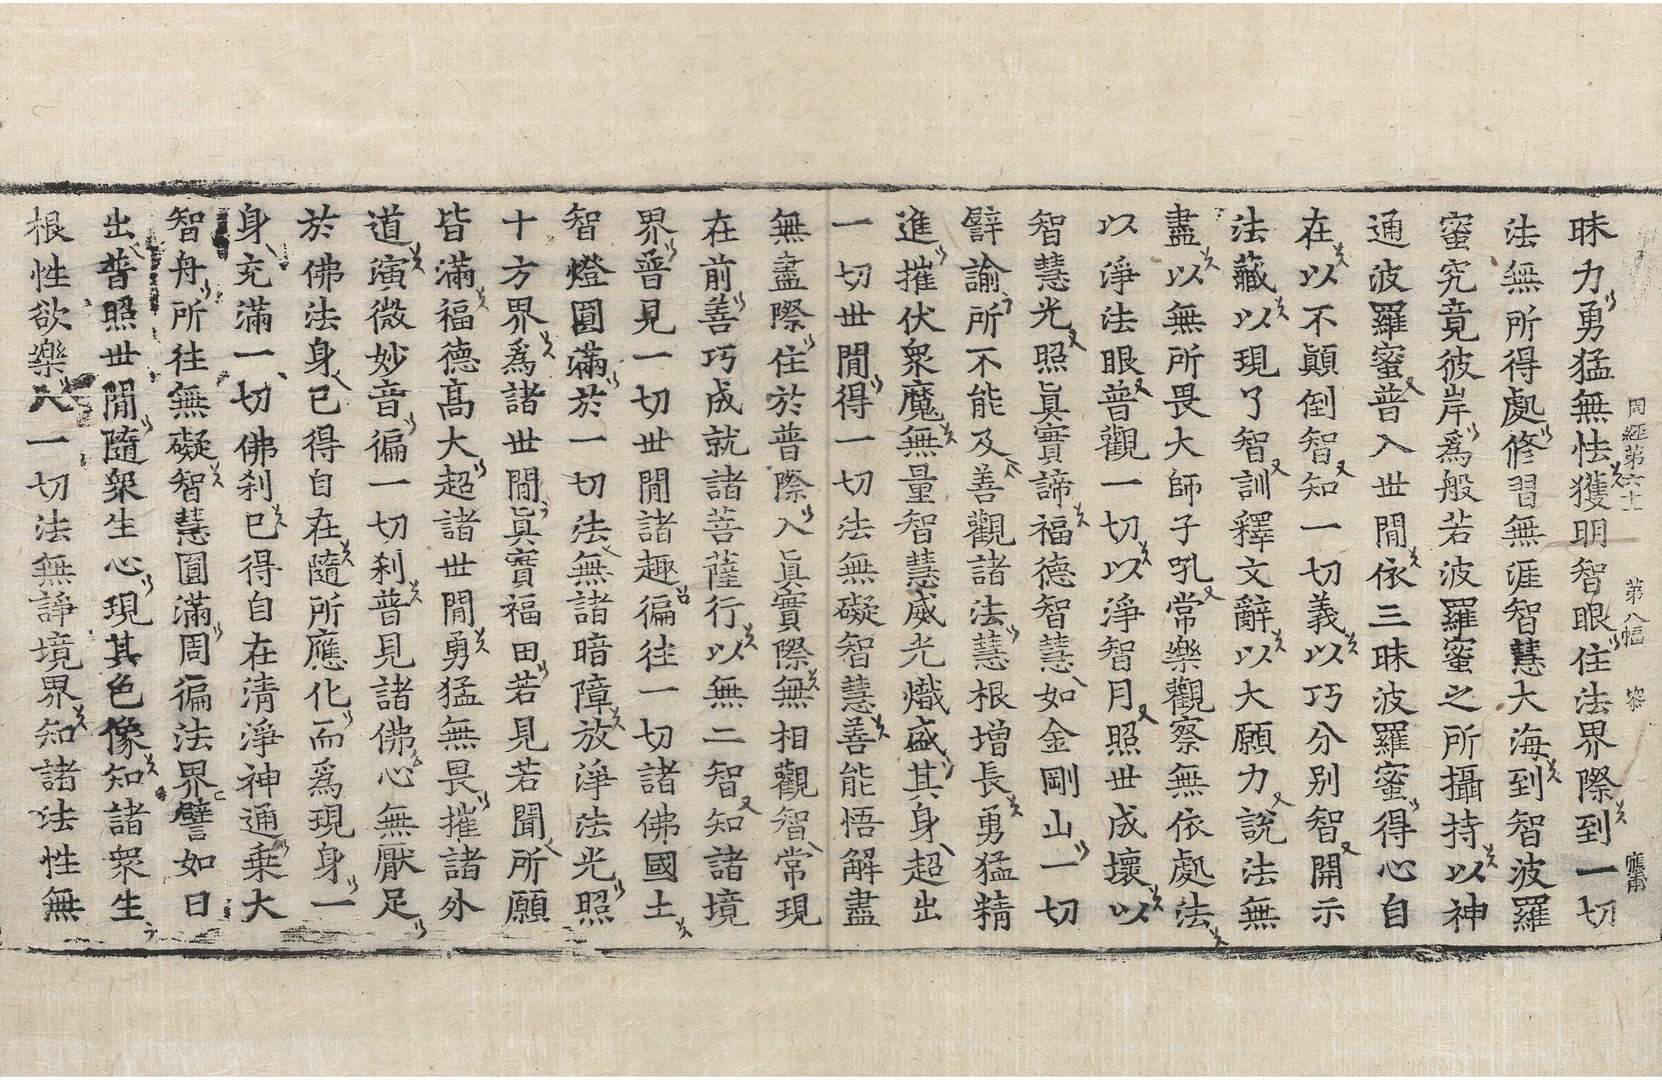 周經第六十 第八幅
昧力勇猛無怯獲明智眼住法界際到一切
法無所得處修習無涯智慧大海到智波羅
蜜究竟彼岸爲般若波羅蜜之所攝持以神
通波羅蜜普入世間依三昧波羅蜜得心自
在以不顚倒智知一切義以巧分別智開示
法藏以現了智訓釋文辭以大願力說法無
盡以無所畏大師子吼常樂觀察無依處法
以淨法眼普觀一切以淨智月照世成壞以
智慧光照眞實諦福德智慧如金剛山一切
譬諭所不能及善觀諸法慧根增長勇猛精
進摧伏衆魔無量智慧威光熾盛其身超出
一切世間得一切法無礙智慧善能悟解盡
無盡際住於普際入眞實際無相觀智常現
在前善巧成就諸菩薩行以無二智知諸境
界普見一切世間諸趣徧往一切諸佛國土
智燈圓滿於一切法無諸暗障放淨法光照
十方界爲諸世間眞實福田若見若聞所願
皆滿福德高大超諸世間勇猛無畏摧諸外
道演微妙音徧一切刹普見諸佛心無厭足
於佛法身已得自在隨所應化而爲現身一
身充滿一切佛刹已得自在清淨神通乘大
智舟所往無礙智慧圓滿周徧法界譬如日
出普照世間隨衆生心現其色像知諸衆生
根性欲樂入一切法無諍境界知諸法性無